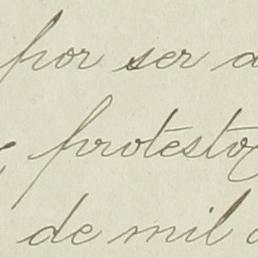 por ser
protesto
de mil